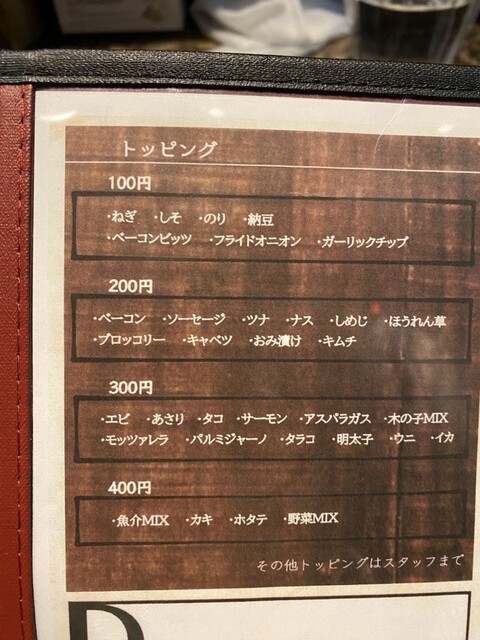 トッピング
100円
・ねぎ ・しそ ・のり ・納豆
・ベーコンビッツ ・フライドオニオン ・ガーリックチップ
200円
・ベーコン ・ソーセージ ・ツナ ・ナス ・しめじ ・ほうれん草
・ブロッコリー ・キャベツ ・おみ漬け ・キムチ
300円
・エビ ・あさり ・タコ ・サーモン ・アスパラガス ・木の子MIX
・モッツァレラ ・パルミジャーノ ・タラコ ・明太子 ・ウニ ・イカ
400円
・魚介MIX ・カキ ・ホタテ ・野菜MIX
その他トッピングはスタッフまで